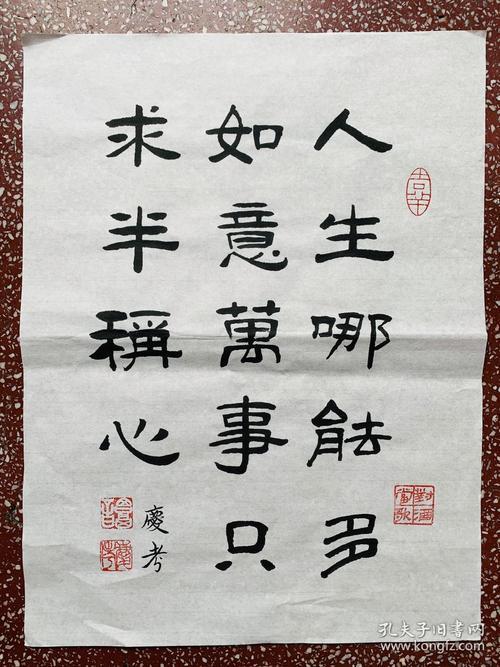 人生哪能多
如意萬事只
求半稱心
慶考
對酒
當歌
孔夫子旧书网
www.kongfz.com